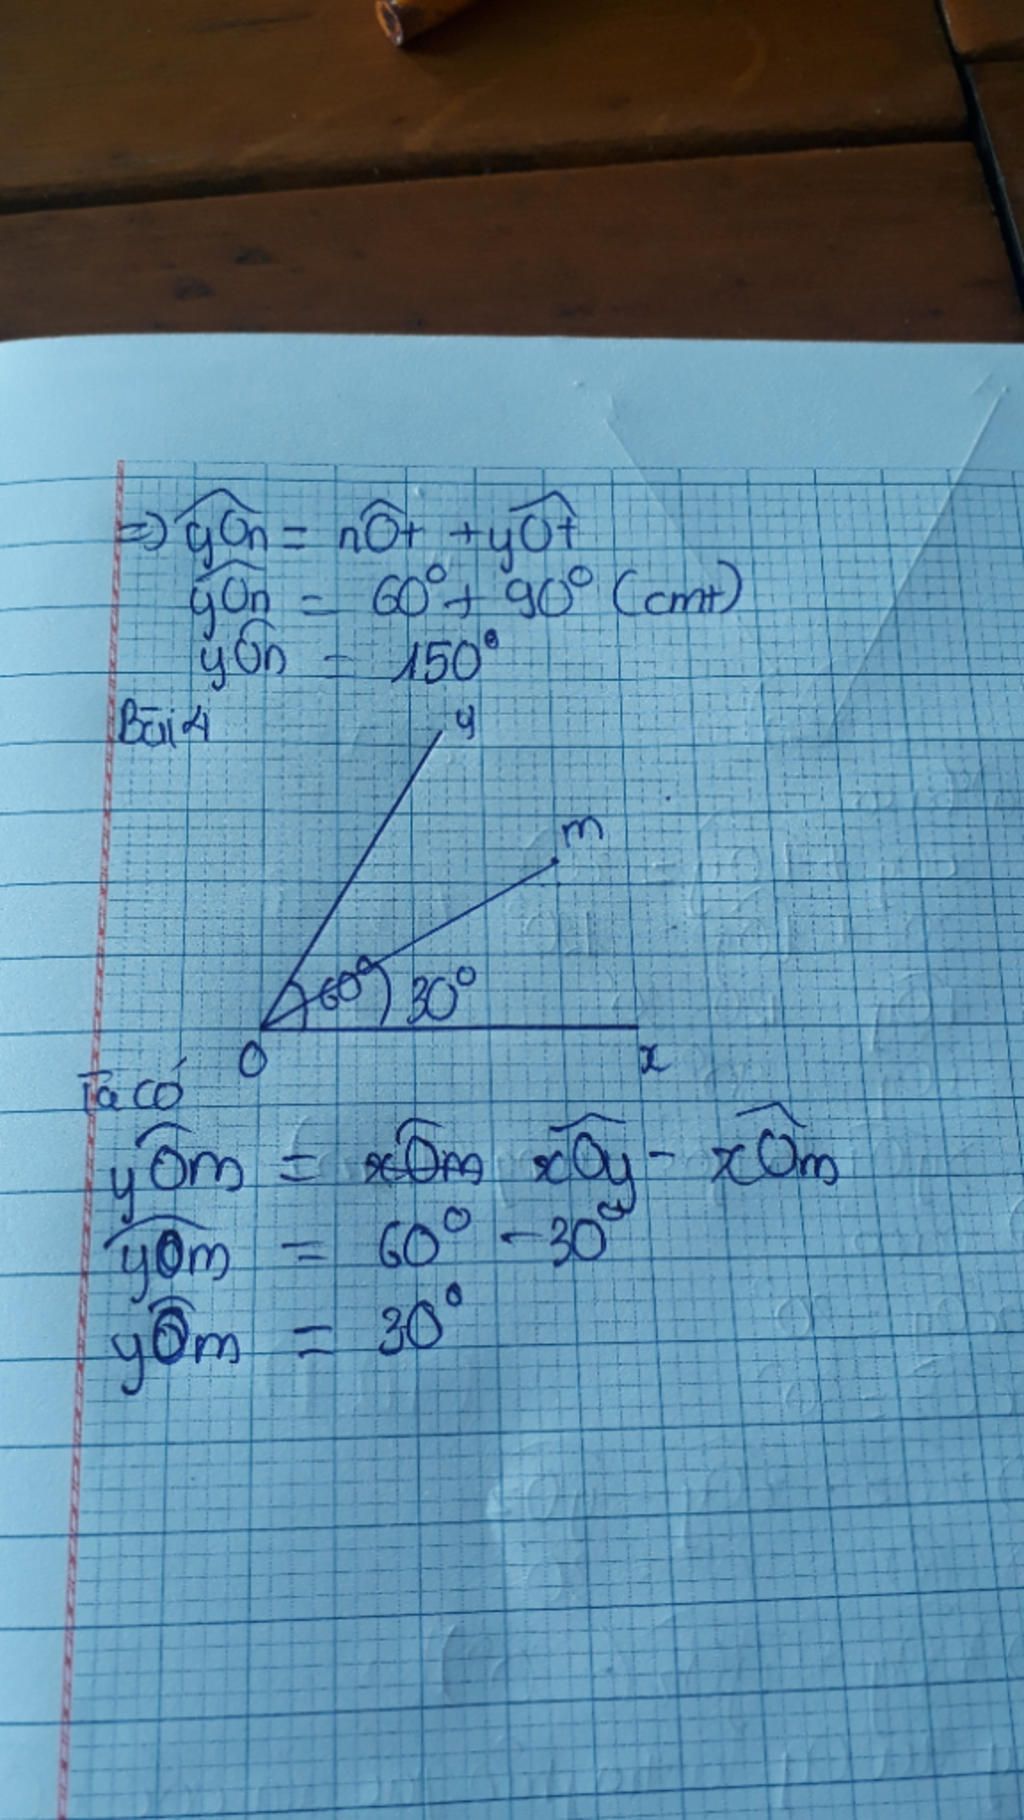 => yOn = nOt + yOt
yOn = 60° + 90° (cmt)
yOn = 150°
Bài 4
y
m
60° 30°
O
x
Ta có
yOm = xOm xOy - xOm
yOm = 60° - 30°
yOm = 30°